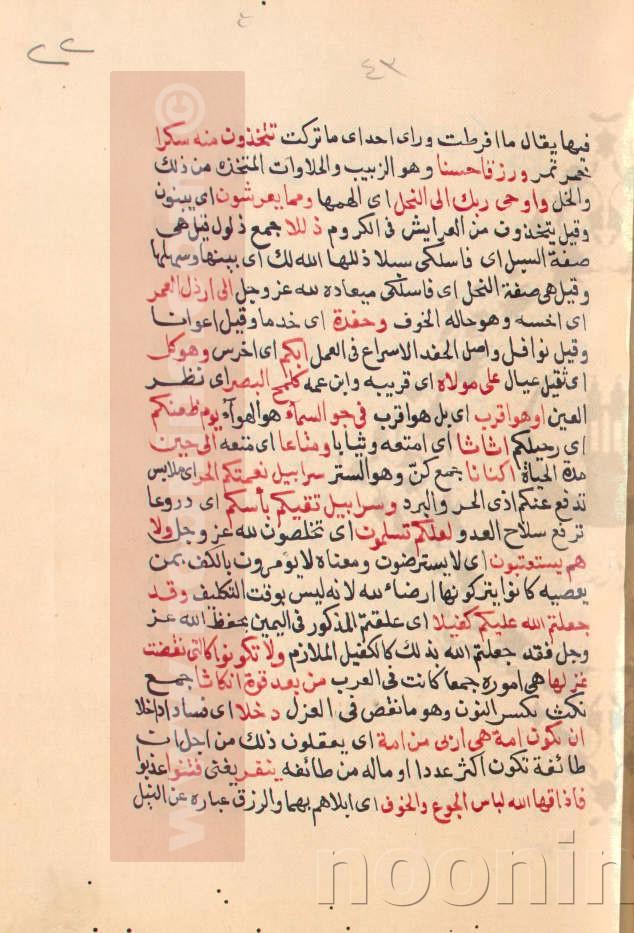 ٢٢
٤٣
فيها يقال ما افرطت ورای احدا ای ما تركت تتخذون منه سكرا
خمر تمر ورزقا حسنا وهو الزبيب والحلاوات المتخذه من ذلك
والخل واوحی ربك الی النحل ای الهمها ومما يعرشون ای يبنون
وقيل يتخذون من العرايش فی الكروم ذللا جمع ذلول قيل هی
صفة السبل ای فاسلكی سبلا ذللها الله لك ای بينها وسهلها
وقيل هی صفة النحل ای فاسلكی ميعاده لله عز وجل الی ارذل العمر
ای اخسه وهو حاله الخوف وحفدة ای خدما وقيل اعوانا
وقيل نوافل واصل الحفد الاسراع فی العمل ابكم ای اخرس وهو كل
ای ثقيل عيال علی مولاه ای قريبه وابن عمه كلمح البصر ای نظر
العين او هو اقرب ای بل هو اقرب فی جو السمآء هو الهوآء يوم ظعنكم
ای رحيلكم اثاثا ای امتعه وثيابا ومتاعا ای متعه الی حين
مدة الحياة اكنانا جمع كن وهو الستر سرابيل نعمتكم الحر ای ملابس
تدفع عنكم اذی الحر والبرد وسرابيل تقيكم بأسكم ای دروعا
ترفع سلاح العدو لعلكم تسلمون ای تخلصون لله عز وجل ولا
هم يستعتبون ای لا يسترضون ومعناه لا يؤمرون بالكف بمن
يعصيه كانوا يتركونها ارضاء لله لانه ليس بوقت التكليف وقد
جعلتم الله عليكم كفيلا ای علقتم المذكور فی اليمين بحفظ الله عز
وجل فقد جعلتم الله بذلك كالكفيل الملازم ولا تكونوا كالتی نقضت
غزلها هی اموره جمعا كانت فی العرب من بعد قوة انكاثا جمع
نكث بكسر النون وهو ما نقض فی الغزل دخلا ای فسادا داخلا
ان تكون امة هی اربی من امة ای يعقلون ذلك من اجل ات
طائفة تكون اكثر عددا او ماله من طائفه ينفر يغنی فتنوا عذبوا
فاذاقها الله لباس الجوع والخوف ای ابلاهم بهما والرزق عباره عن النيل
noonin